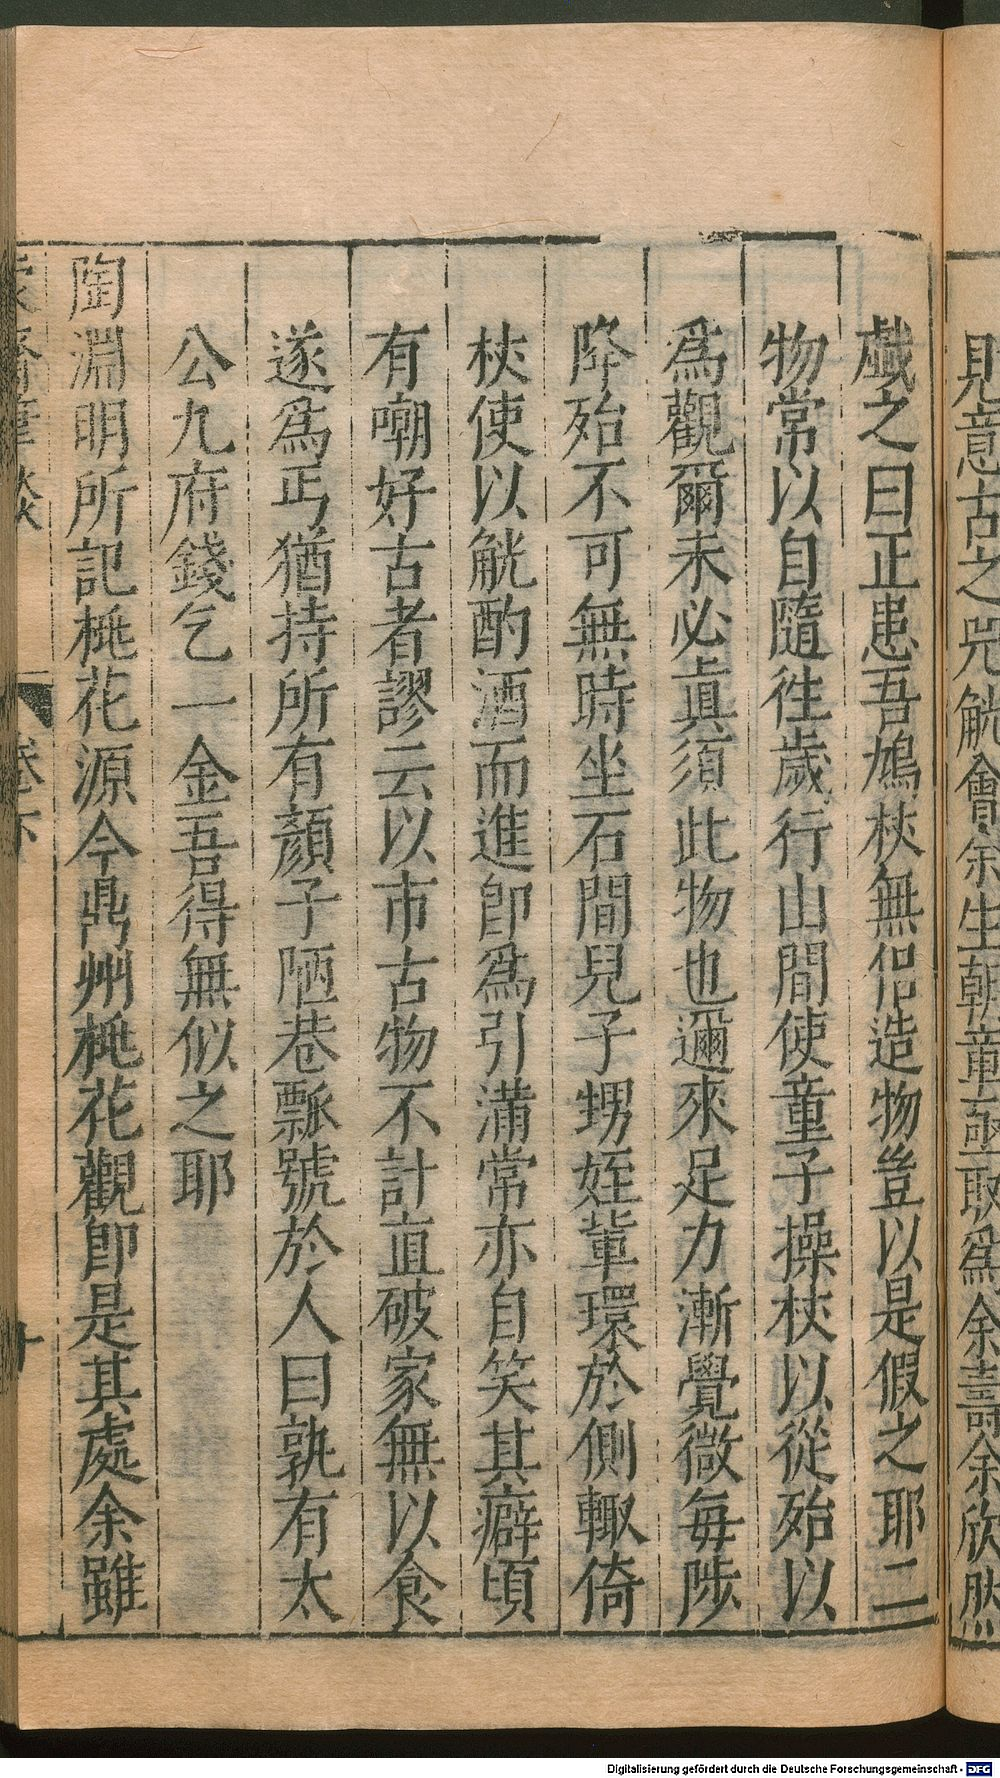 見意古之兕觥會余生朝章亟取爲余壽余欣然
戱之曰正患吾鳩杖無侣造物豈以是假之耶二
物常以自隨徃歲行山間使童子操杖以從殆以
爲觀爾未必眞須此物也邇來足力漸覺微每陟
降殆不可無時坐石間兒子甥姪輩環於側輙倚
杖使以觥酌酒而進卽爲引滿常亦自笑其癖頃
有嘲好古者謬云以市古物不計直破家無以食
遂爲丐猶持所有顏子陋巷瓢號於人曰孰有太
公九府錢乞一金吾得無似之耶
陶淵明所記桃花源今鼎州桃花觀卽是其處余雖
卷下
十
Digitalisierung gefördert durch die Deutsche Forschungsgemeinschaft - DFG